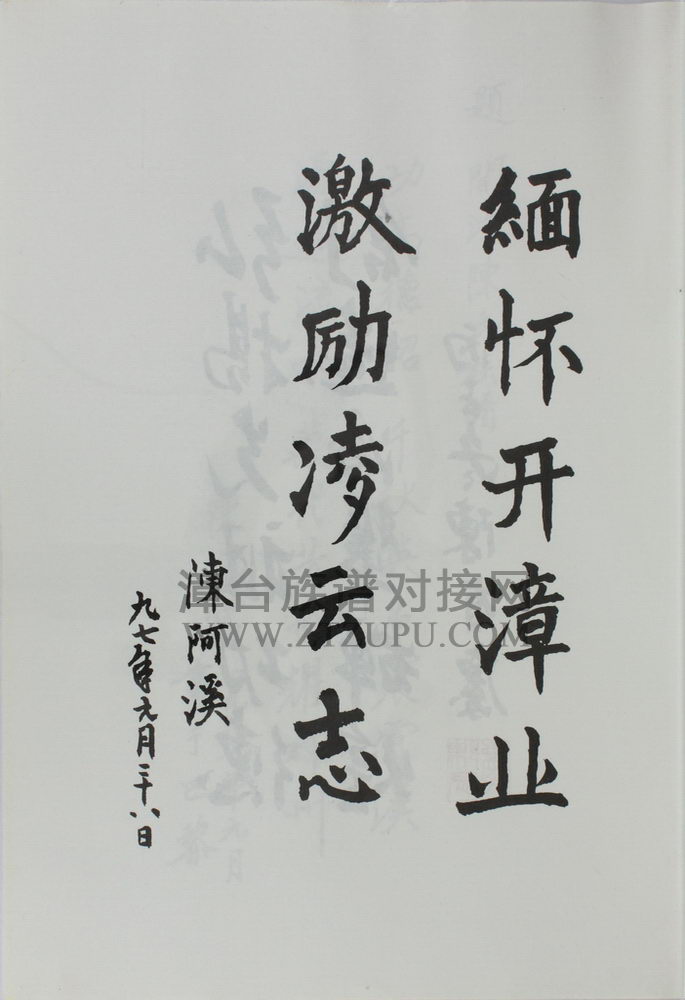 緬怀开漳业
激励凌云志
陳阿溪
九七年元月二十八日
漳台族谱对接网
WWW.ZTZUPU.COM